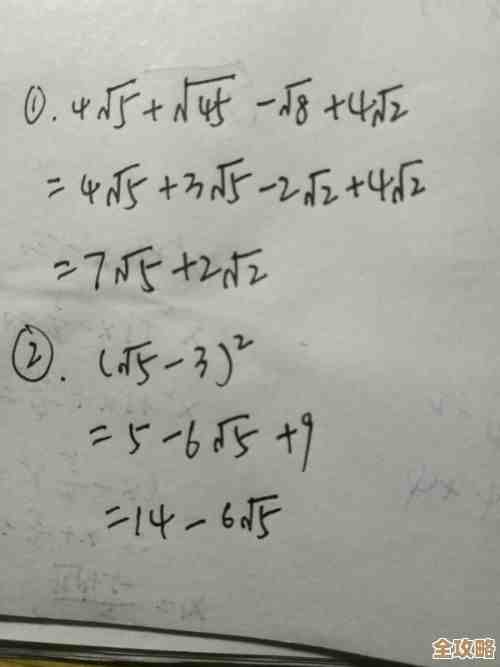 ①. 4√5 + √45 - √8 + 4√2
= 4√5 + 3√5 - 2√2 + 4√2
= 7√5 + 2√2
②. (√5 - 3)²
= 5 - 6√5 + 9
= 14 - 6√5
全攻略